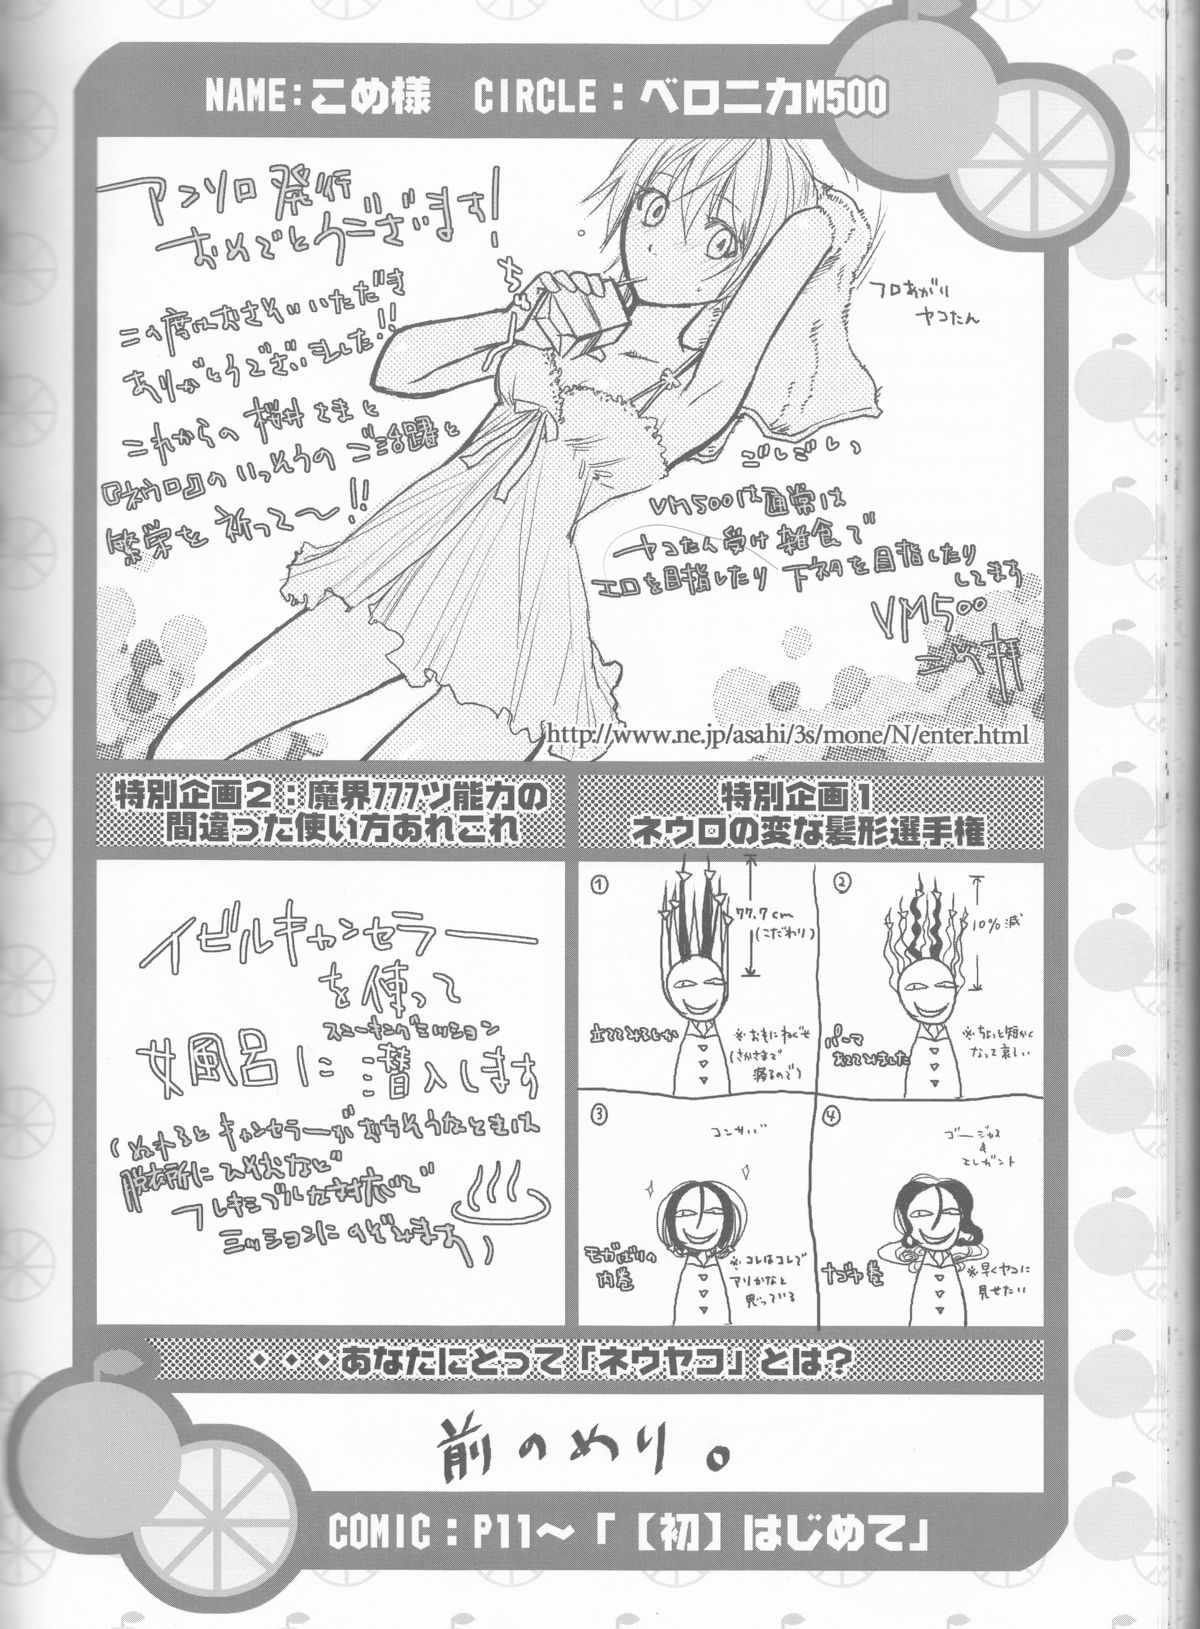 NAME:こめ様 CIRCLE:ベロニカM500
アンソロ発行
おめでとうございます!
この度はおさそいいただき
ありがとうございました!!
これからの 桜井さまと
『ネウロ』の いっそうの ご活躍と
繁栄を 祈って〜!!
ちゅー
フロあがり
ヤコたん
ごしごしっ
VM500は通常は
ヤコたん受け 雑食で
エロを目指したり 下ネタを目指したり
してます
VM500
こめ 拝
http://www.ne.jp/asahi/3s/mone/N/enter.html
特別企画1
ネウロの変な髪形選手権
①
77.7cm
(こだわり)
立ててみるとか
※おもにねぐせ
(さかさまで
寝るので)
②
10%減
パーマ
あててみました
※ちょっと短かく
なって哀しい
③
コンサバ
モガばりの
内巻
※コレはコレで
アリかなと
思っている
④
ゴージャス
&
エレガント
ナゴヤ巻
※早くヤコに
見せたい
特別企画2:魔界777ツ能力の
間違った使い方あれこれ
イビルキャンセラー
を使って
スニーキングミッション
女風呂に潜入します
(ぬれるとキャンセラーがおちそうなときは
脱衣所にひそむなど
フレキシブルな対応で
ミッションにのぞみます)
・・・あなたにとって「ネウヤコ」とは?
前のめり。
COMIC:P11〜「【初】はじめて」